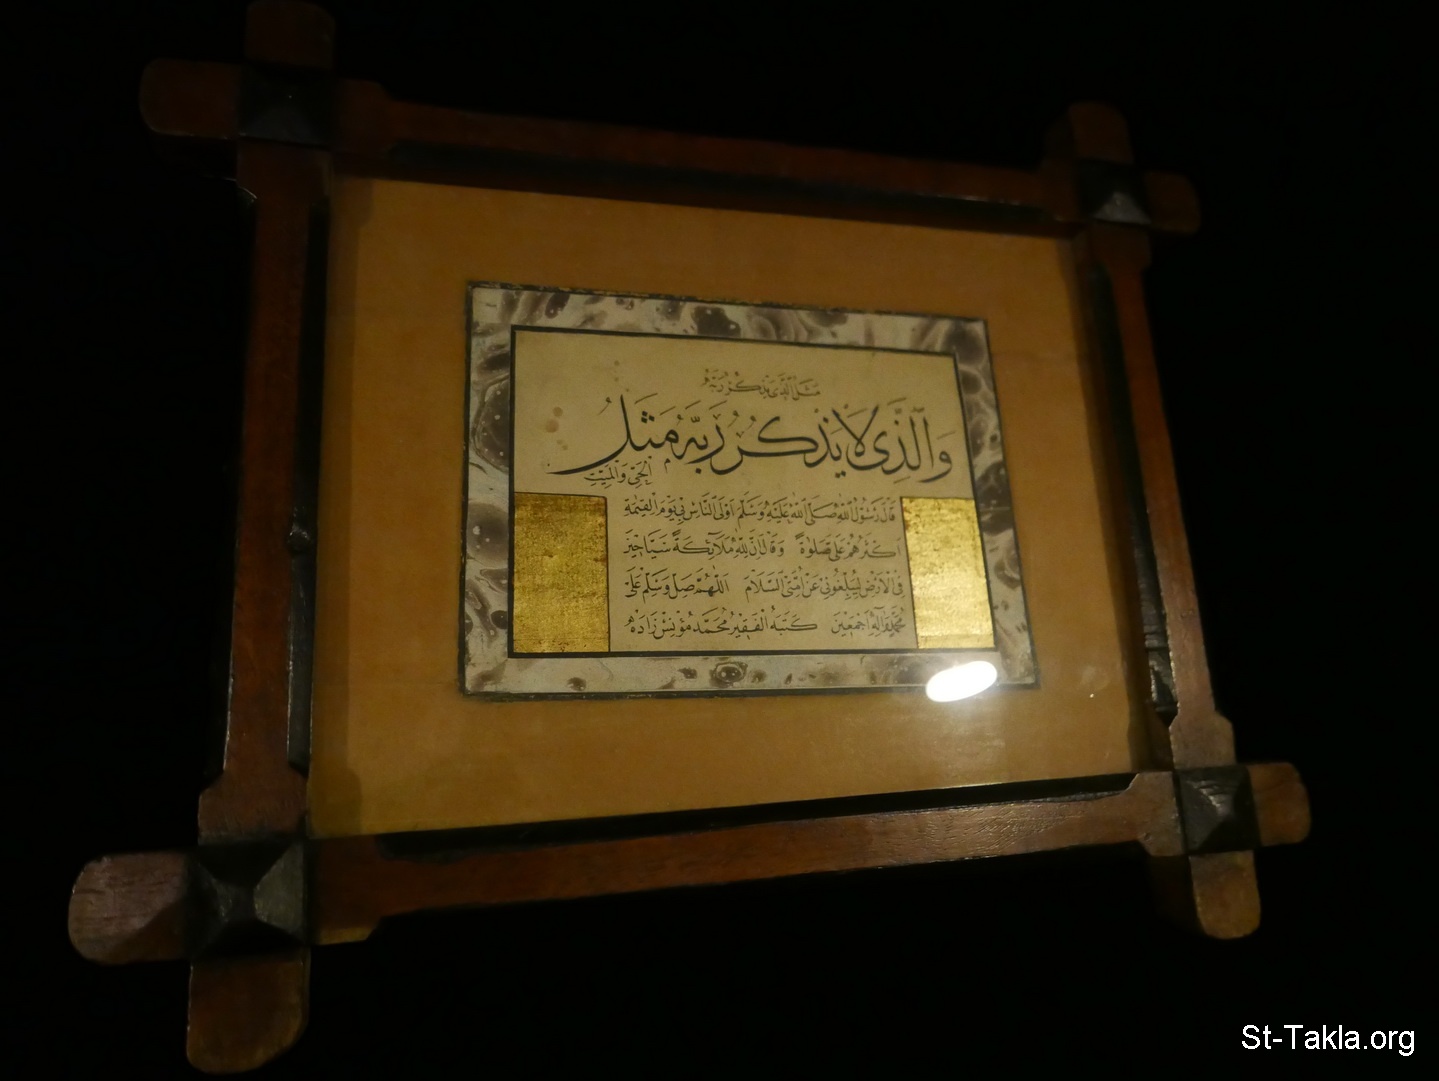 مثل الذي يذكر ربه
والذي لا يذكر ربه مثل
الحي والميت
قال رسول الله صلى الله عليه وسلم اولى الناس بي يوم القيمة
اكثرهم على صلوة وقال ان لله ملائكة سياحين
في الارض ليبلغوني عن امتي السلام اللهم صل وسلم على
محمد وآله اجمعين كتبه الفقير محمد مؤنس زاده
St-Takla.org